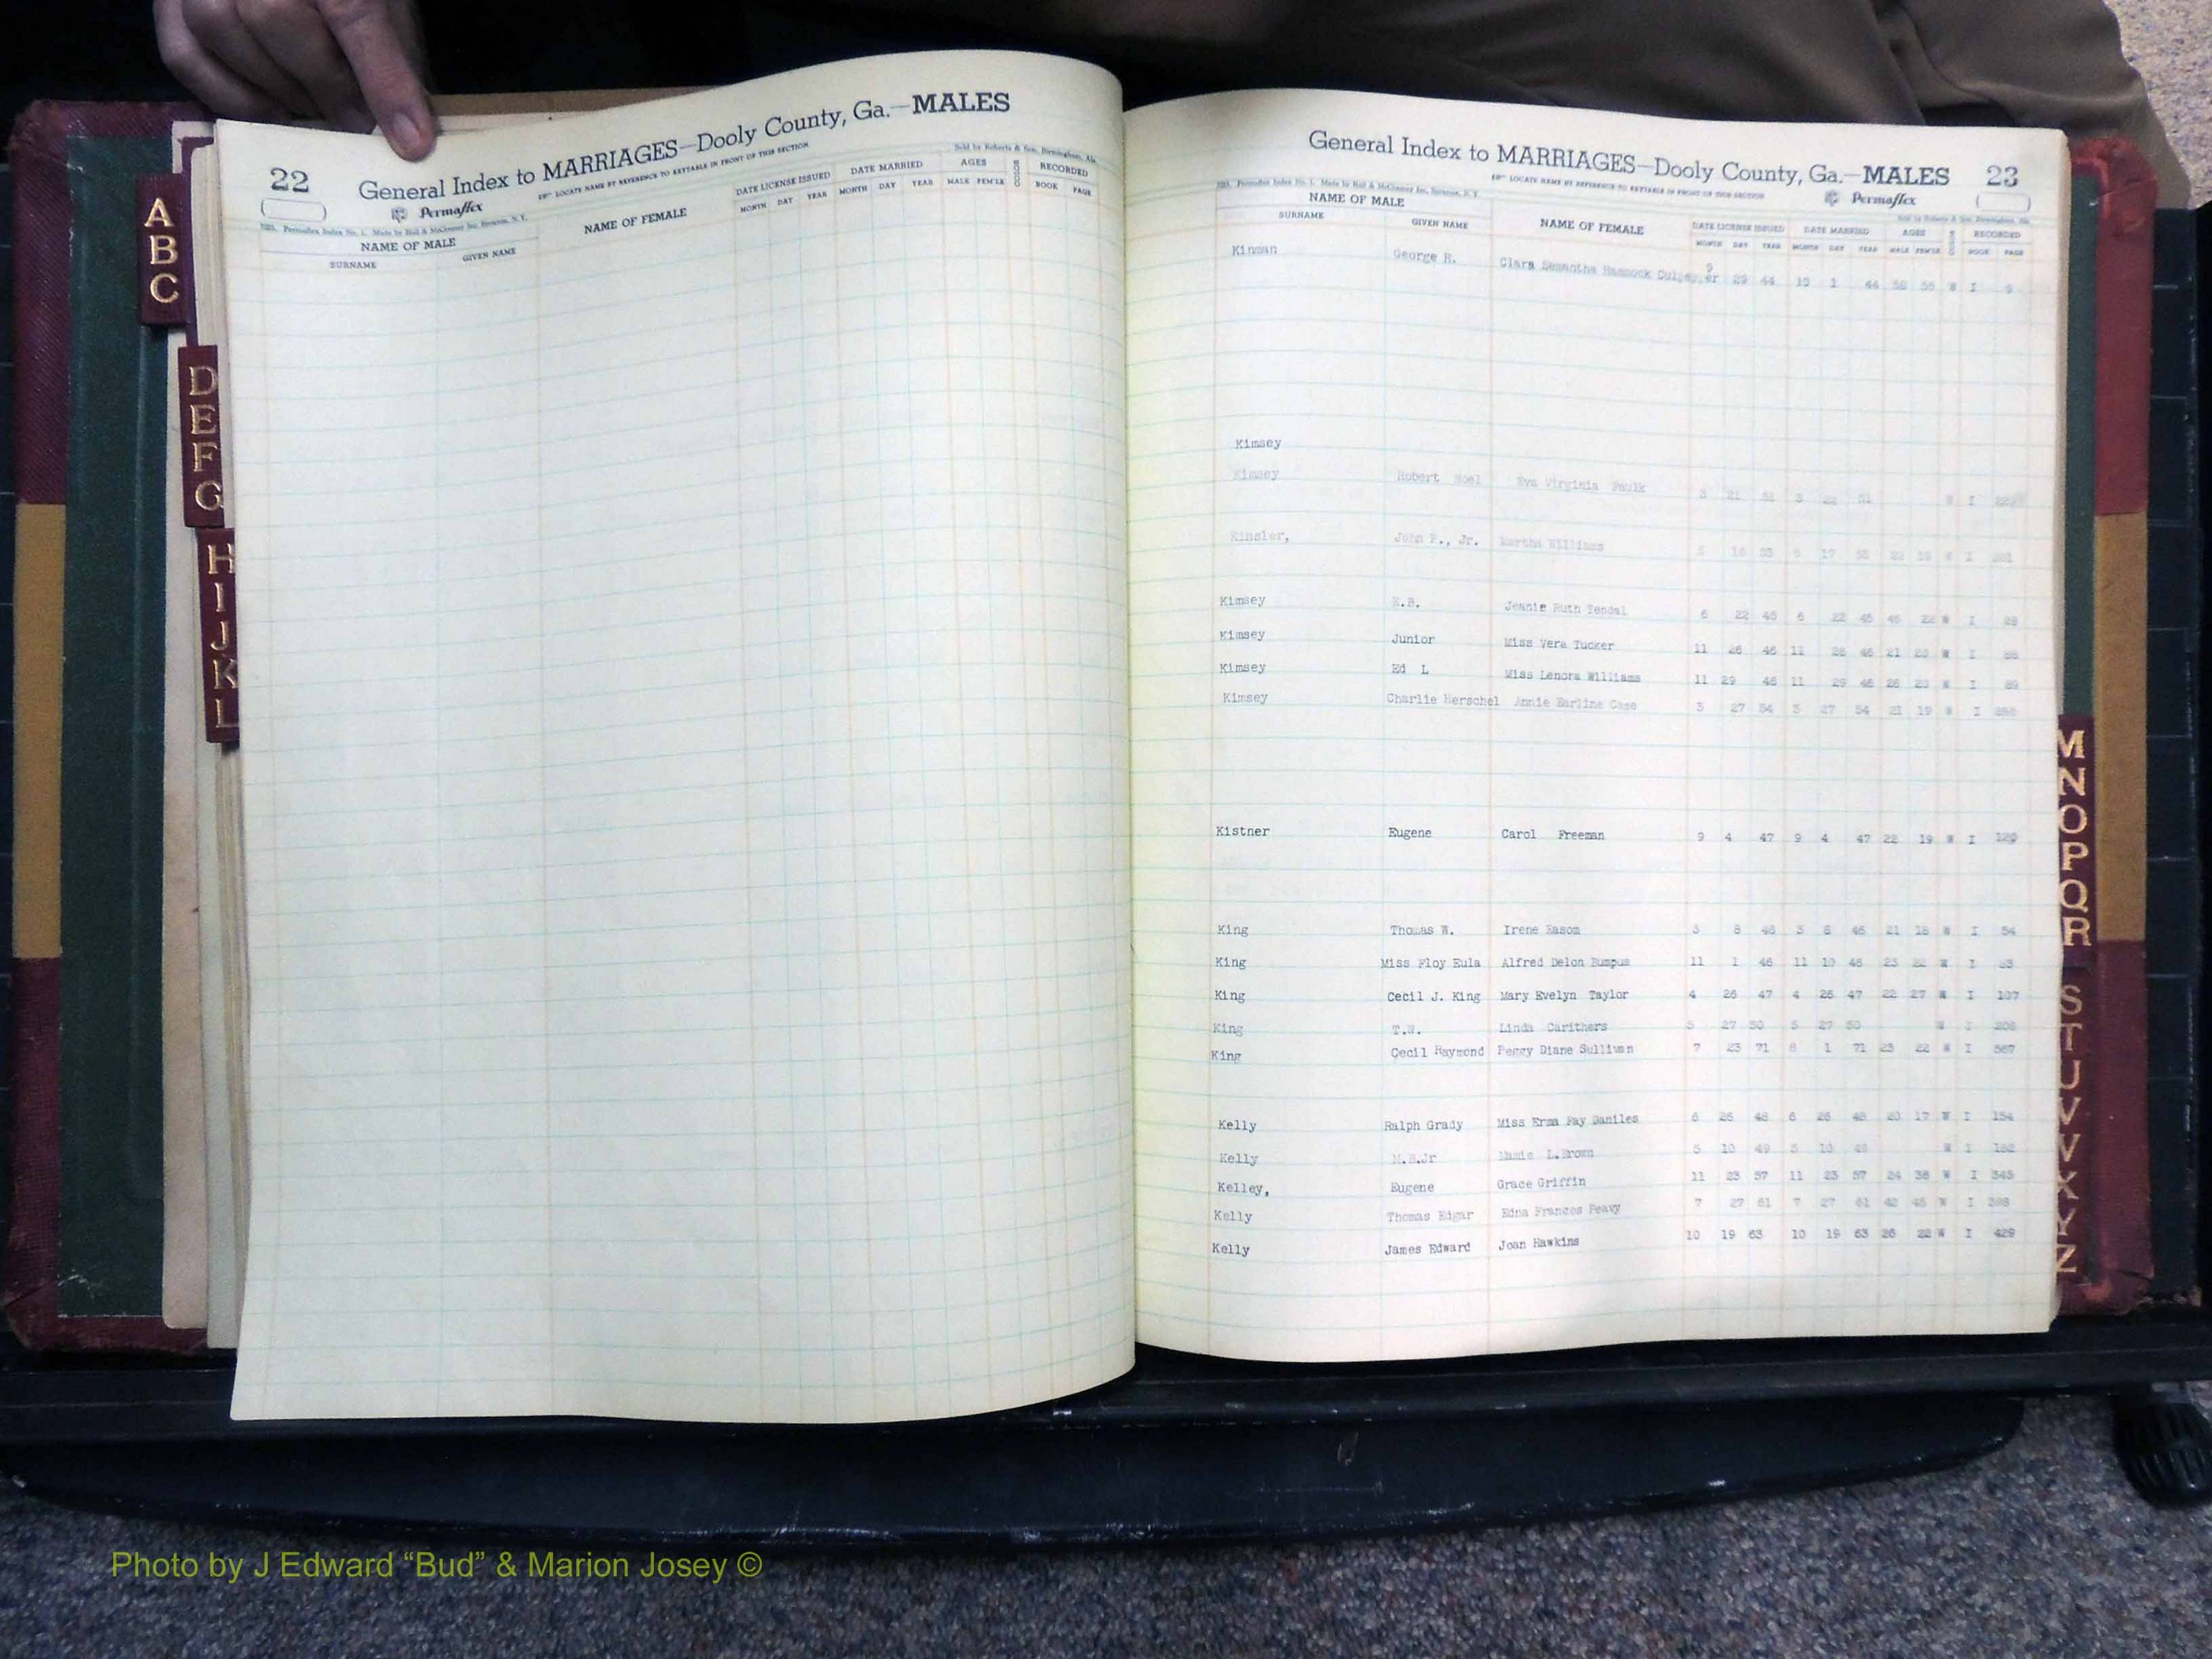 A
B
C
D
E
F
G
H
I
J
K
L
22
General Index to MARRIAGES—Dooly County, Ga.—MALES
LOCATE NAME BY REFERENCE TO KEYTABLE IN FRONT OF THIS SECTION
Permaflex
Sold by Roberts & Son, Birmingham, Ala.
NAME OF MALE NAME OF FEMALE DATE LICENSE ISSUED DATE MARRIED AGES COLOR RECORDED
SURNAME GIVEN NAME MONTH DAY YEAR MONTH DAY YEAR MALE FEM'LE BOOK PAGE
General Index to MARRIAGES—Dooly County, Ga.—MALES 23
LOCATE NAME BY REFERENCE TO KEYTABLE IN FRONT OF THIS SECTION
Permaflex
NAME OF MALE NAME OF FEMALE DATE LICENSE ISSUED DATE MARRIED AGES COLOR RECORDED
SURNAME GIVEN NAME MONTH DAY YEAR MONTH DAY YEAR MALE FEM'LE BOOK PAGE
Kinman George R. Clara Semantha Hammock Culpepper 9 29 44 10 1 44 W I 9
Kimsey
Kimsey Robert Noel Eva Virginia Faulk 3 21 51 3 22 51 W I
Kinsler, John P., Jr. Martha Williams 17 W I
Kimsey Jeanie Ruth Tendal 6 22 45 6 22 45 22 W I
Kimsey Junior Miss Vera Tucker 11 26 46 11 26 46 21 20 W I
Kimsey Ed L Miss Lenora Williams 11 29 46 11 29 46 26 20 W I 89
Kimsey Charlie Herschel Annie Earline Case 3 27 54 3 27 54 21 19 W I
Kistner Eugene Carol Freeman 9 4 47 9 4 47 22 19 W I 120
King Thomas W. Irene Eason 8 46 8 46 21 18 W I 54
King Miss Floy Eula Alfred Delon Bumpus 11 1 46 11 10 46 W I
King Cecil J. King Mary Evelyn Taylor 4 26 47 4 26 47 22 27 W I 107
King T.W. Linda Carithers 5 27 50 5 27 50 W I
King Cecil Raymond Peggy Diane Sullivan 7 23 71 8 1 71 23 22 W I 567
Kelly Ralph Grady Miss Erma Fay Daniles 6 26 48 6 26 48 20 17 W I 154
Kelly Mamie L.Brown 5 10 49 5 10 49 W I
Kelley, Eugene Grace Griffin 11 23 57 11 23 57 24 38 W I 345
Kelly Thomas Edgar Edna Frances Peavy 7 27 61 7 27 61 42 45 W I
Kelly James Edward Joan Hawkins 10 19 63 10 19 63 26 22 W I 429
M
N
O
P
Q
R
S
T
U
V
W
X
Y
Z
Photo by J Edward “Bud” & Marion Josey ©